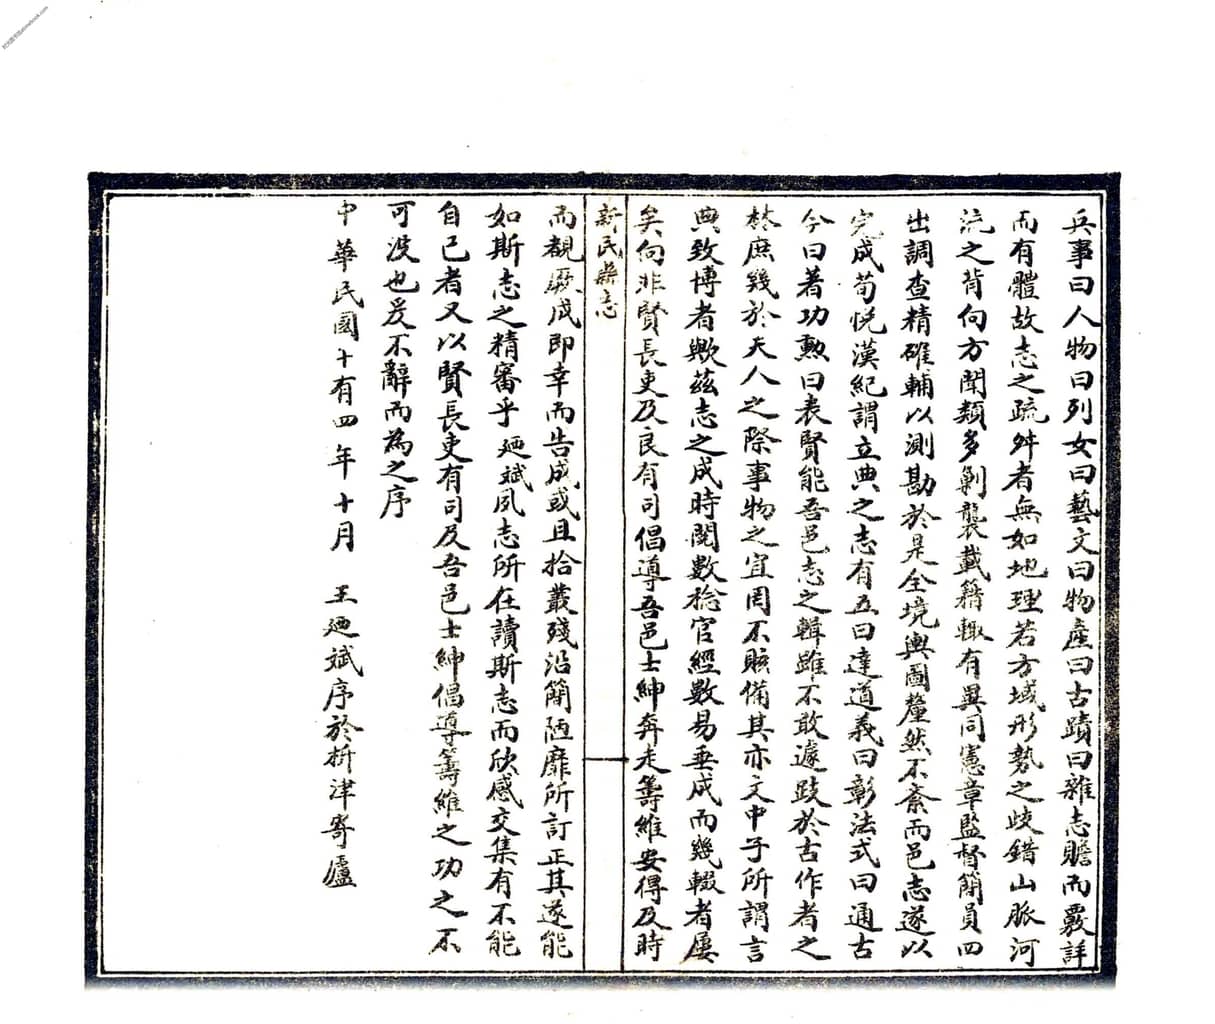 兵事曰人物曰列女曰藝文曰物產曰古蹟曰雜志贍而覈詳
而有體故志之疏舛者無如地理若方域形勢之歧錯山脈河
流之背向方聞類多剿襲載籍輒有異同憲章監督簡員四
出調查精確輔以測勘於是全境輿圖釐然不紊而邑志遂以
完成荀悅漢紀謂立典之志有五曰達道義曰彰法式曰通古
今曰著功勲曰表賢能吾邑志之輯雖不敢遽跂於古作者之
林庶幾於天人之際事物之宜罔不賅備其亦文中子所謂言
典致博者歟茲志之成時閱數稔官經數易垂成而幾輟者屢
矣向非賢長吏及良有司倡導吾邑士紳奔走籌維安得及時
新民縣志
而覩厥成即幸而告成或且拾叢殘沿簡陋靡所訂正其遂能
如斯志之精審乎廼斌夙志所在讀斯志而欣感交集有不能
自已者又以賢長吏有司及吾邑士紳倡導籌維之功之不
可沒也爰不辭而為之序
中華民國十有四年十月　王廼斌序於析津寄廬